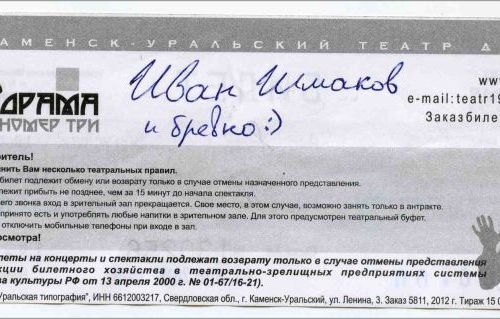 АМЕНСК-УРАЛЬСКИЙ ТЕАТР Д
ДРАМА
НОМЕР ТРИ
Иван Шмаков
и бревно :)
www.
e-mail:teatr19
Заказбиле
ритель!
нить Вам несколько театральных правил.
билет подлежит обмену или возврату только в случае отмены назначенного представления.
лежит прибыть не позднее, чем за 15 минут до начала спектакля.
его звонка вход в зрительный зал прекращается. Свое место, в этом случае, возможно занять только в антракте.
принято есть и употреблять любые напитки в зрительном зале. Для этого предусмотрен театральный буфет.
отключить мобильные телефоны при входе в зал.
росмотра!
леты на концерты и спектакли подлежат возврату только в случае отмены представления
кции билетного хозяйства в театрально-зрелищных предприятиях системы
ва культуры РФ от 13 апреля 2000 г. № 01-67/16-21).
Уральская типография", ИНН 6612003217, Свердловская обл., г. Каменск-Уральский, ул. Ленина, 3. Заказ 5811, 2012 г. Тираж 15 0